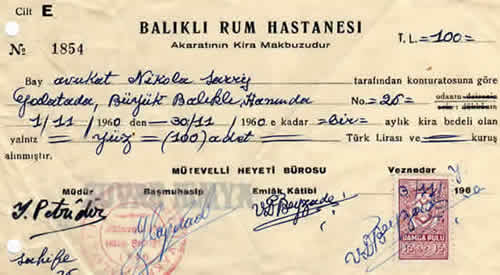 Cilt E
BALIKLI RUM HASTANESİ
Akaratının Kira Makbuzudur
T.L.=100=
№ 1854
Bay avukat Nikola tarafından konturatosuna göre
Galatada, Büyük Balıklı Hanında No.=26= odanın
1/11/1960 den —30/11/1960.e kadar =bir= aylık kira bedeli olan
yalnız = yüz = (100) adet — Türk Lirası ve kuruş
alınmıştır.
MÜTEVELLİ HEYETİ BÜROSU
Müdür Başmuhasip Emlâk Kâtibi Veznedar
3/11/ 196
DAMGA PULU
sahife